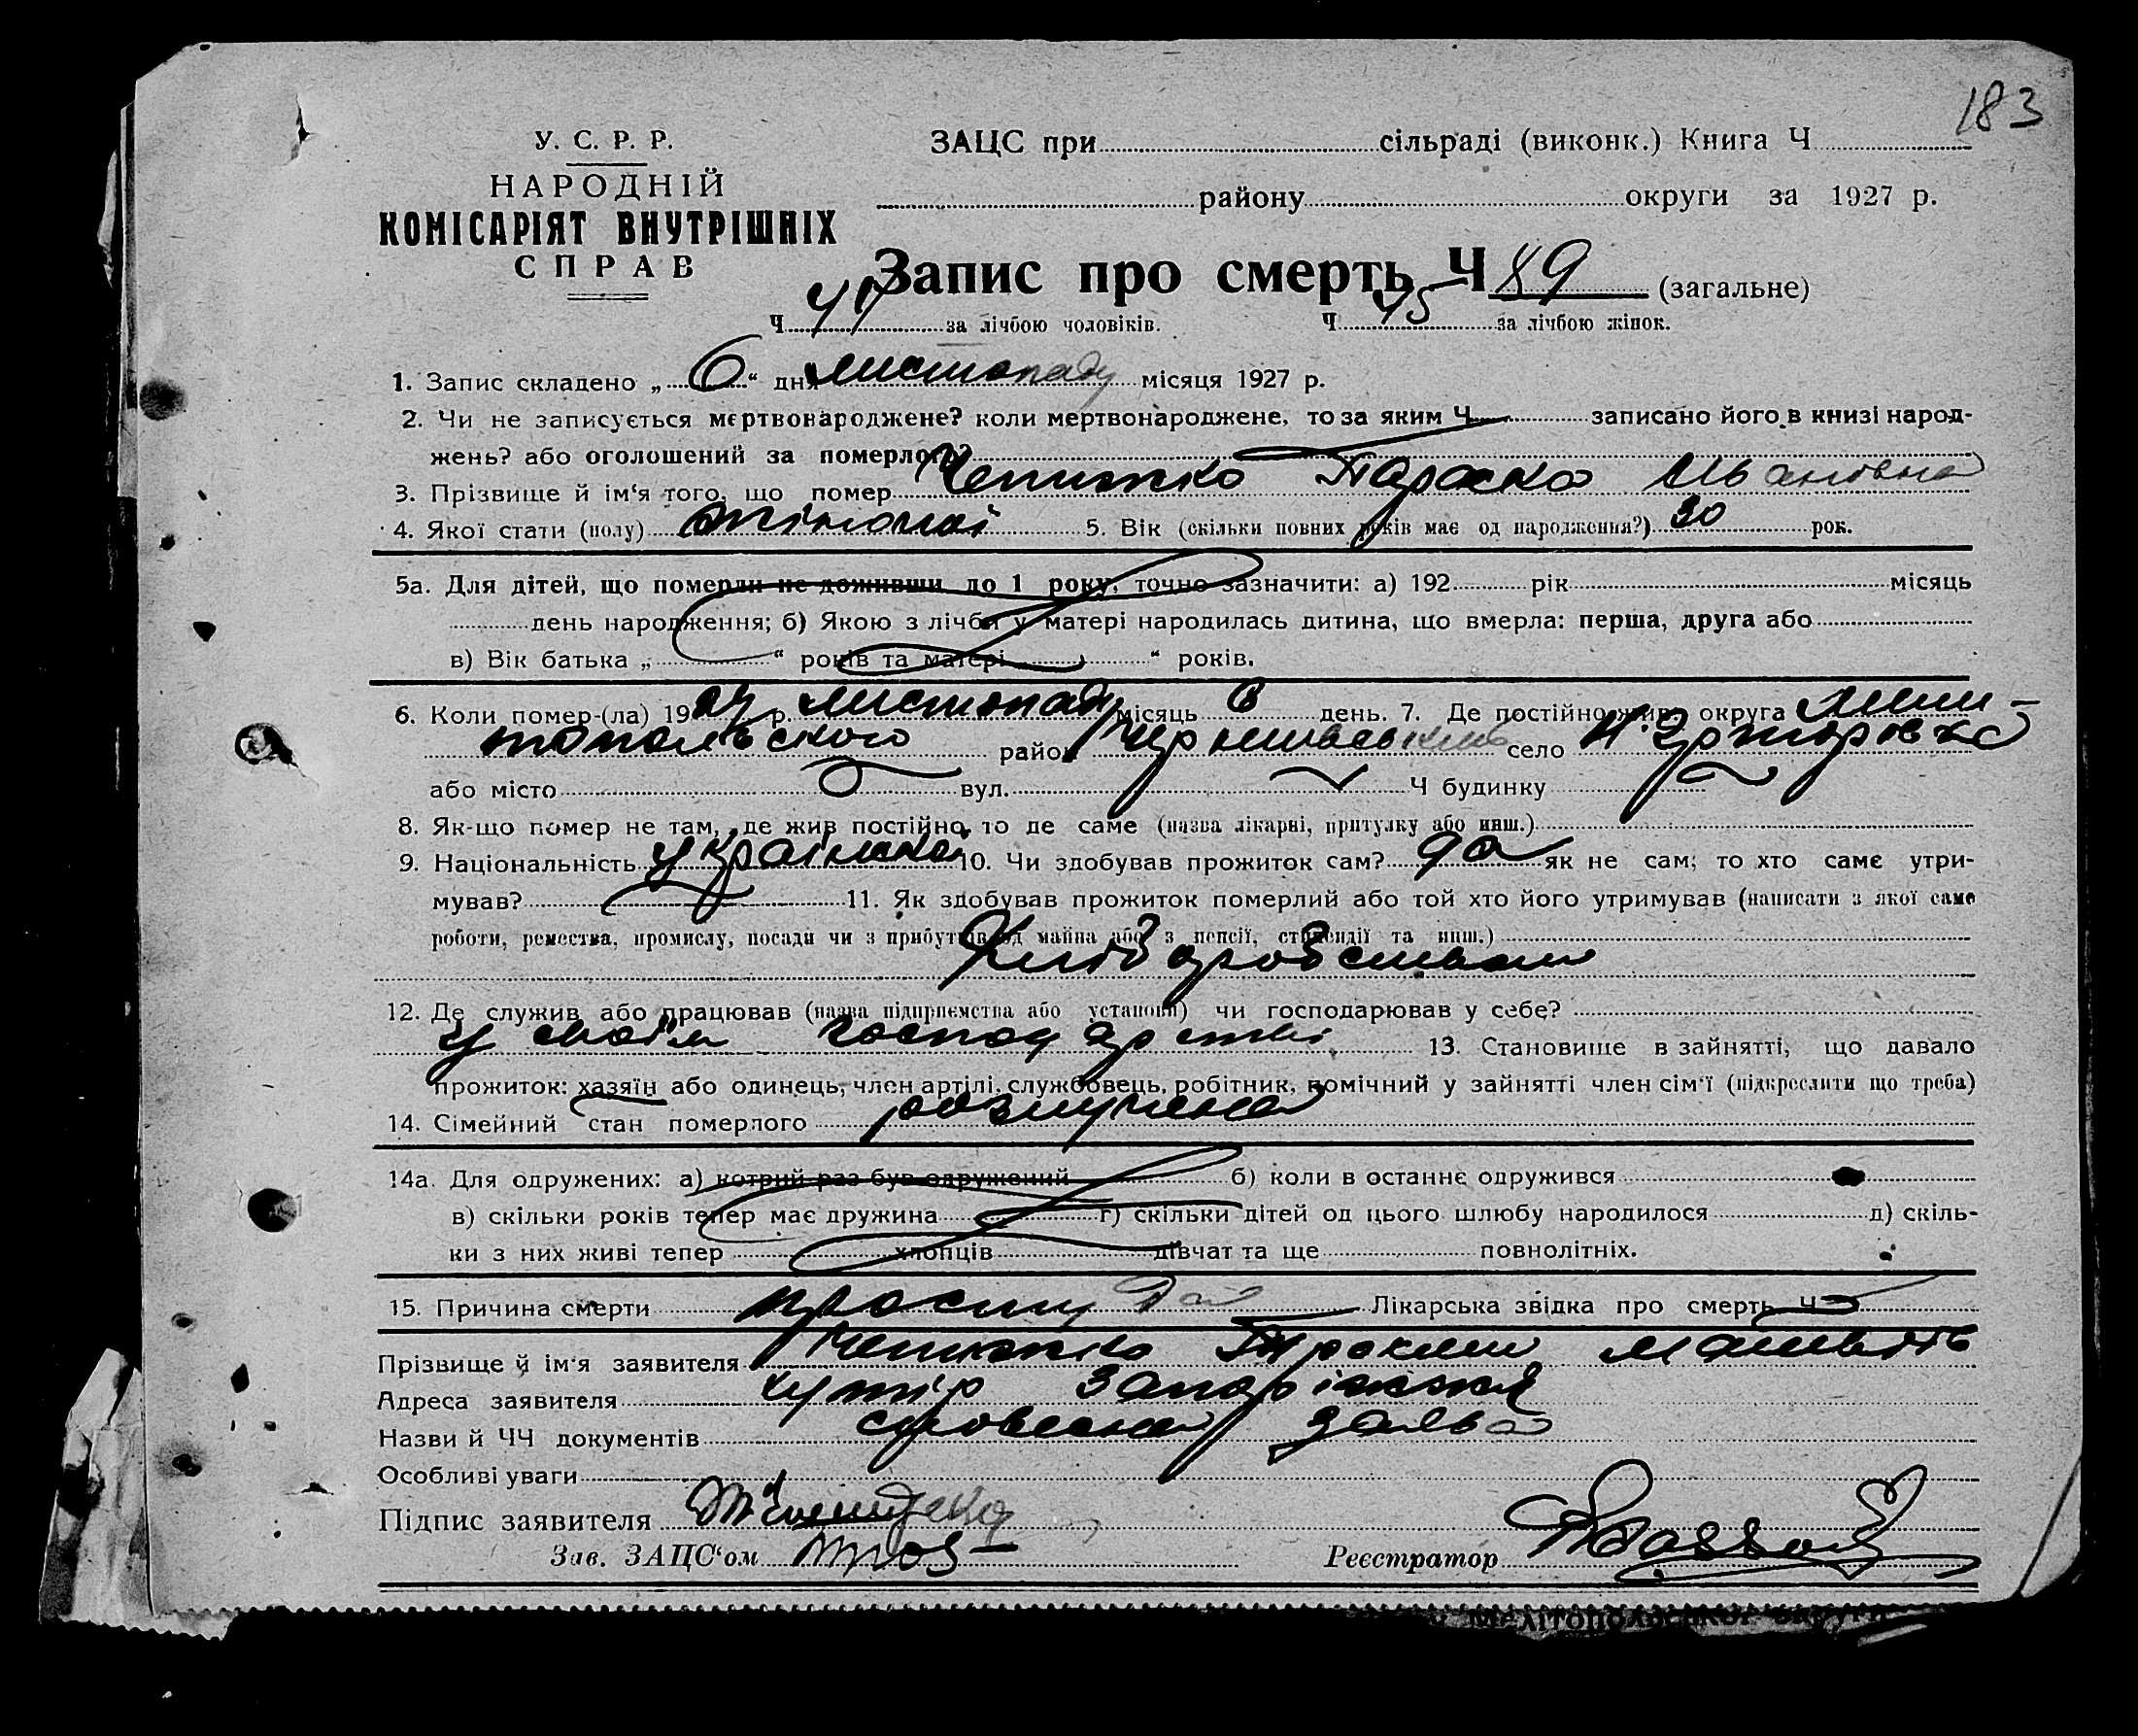 183
У. С. Р. Р.
НАРОДНІЙ
КОМІСАРІЯТ ВНУТРІШНІХ
СПРАВ
ЗАЦС при сільраді (виконк.) Книга Ч
району округи за 1927 р.
Запис про смерть Ч 89 (загальне)
Ч 44 за лічбою чоловіків. Ч 45 за лічбою жінок.
1. Запис складено „ 6 “ дня листопаду місяця 1927 р.
2. Чи не записується мертвонароджене? коли мертвонароджене, то за яким Ч записано його в книзі народ-
жень? або оголошений за померлого?
3. Прізвище й ім‘я того, що помер Чепижко Параска Ивановна
4. Якої стати (полу) жіночої 5. Вік (скільки повних років має од народження?) 30 рок.
5а. Для дітей, що померли не доживши до 1 року, точно зазначити: а) 192 рік місяць
день народження; б) Якою з лічби у матері народилась дитина, що вмерла: перша, друга або
в) Вік батька „ “ років та матері “ років.
6. Коли помер-(ла) 1927 р. листопаду місяць 6 день. 7. Де постійно жив округа Мелі-
топольского район село
або місто вул. Ч будинку
8. Як-що помер не там, де жив постійно, то де саме (назва лікарні, притулку або инш.)
9. Національність українка 10. Чи здобував прожиток сам? да як не сам; то хто саме утри-
мував? 11. Як здобував прожиток померлий або той хто його утримував (написати з якої саме
роботи, ремества, промислу, посади чи з прибутків од майна або з пенсії, стипендії та инш.)
Хліборобством
12. Де служив або працював (назва підприємства або установи) чи господарював у себе?
У своїм господарстві 13. Становище в зайнятті, що давало
прожиток: хазяїн або одинець, член артілі, службовець, робітник, помічний у зайнятті член сім‘ї (підкреслити що треба)
14. Сімейний стан померлого розлучена
14а. Для одружених: а) котрий раз був одружений б) коли в останнє одружився
в) скільки років тепер має дружина г) скільки дітей од цього шлюбу народилося д) скіль-
ки з них живі тепер хлопців дівчат та ще повнолітніх.
15. Причина смерти Лікарська звідка про смерть Ч
Прізвище й ім‘я заявителя Чепижко
Адреса заявителя хутір
Назви й ЧЧ документів словесна заява
Особливі уваги
Підпис заявителя
Зав. ЗАЦС‘ом Реєстратор
Мелітопольської округи